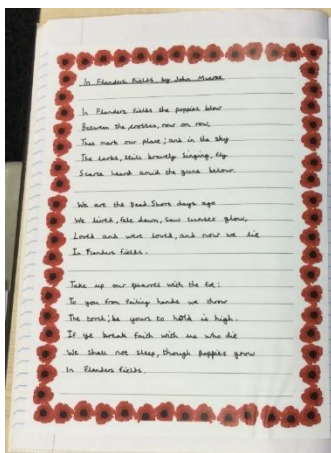 In Flanders Fields by John Mcrae
In Flanders Fields the poppies blow
Between the crosses, row on row,
That mark our place; and in the sky
The larks, still bravely singing, fly
Scarce heard amid the guns below.
We are the Dead. Short days ago
We lived, felt dawn, saw sunset glow,
Loved and were loved, and now we lie
In Flanders fields.
Take up our quarrel with the foe:
To you from failing hands we throw
The torch; be yours to hold it high.
If ye break faith with us who die
We shall not sleep, though poppies grow
In Flanders fields.